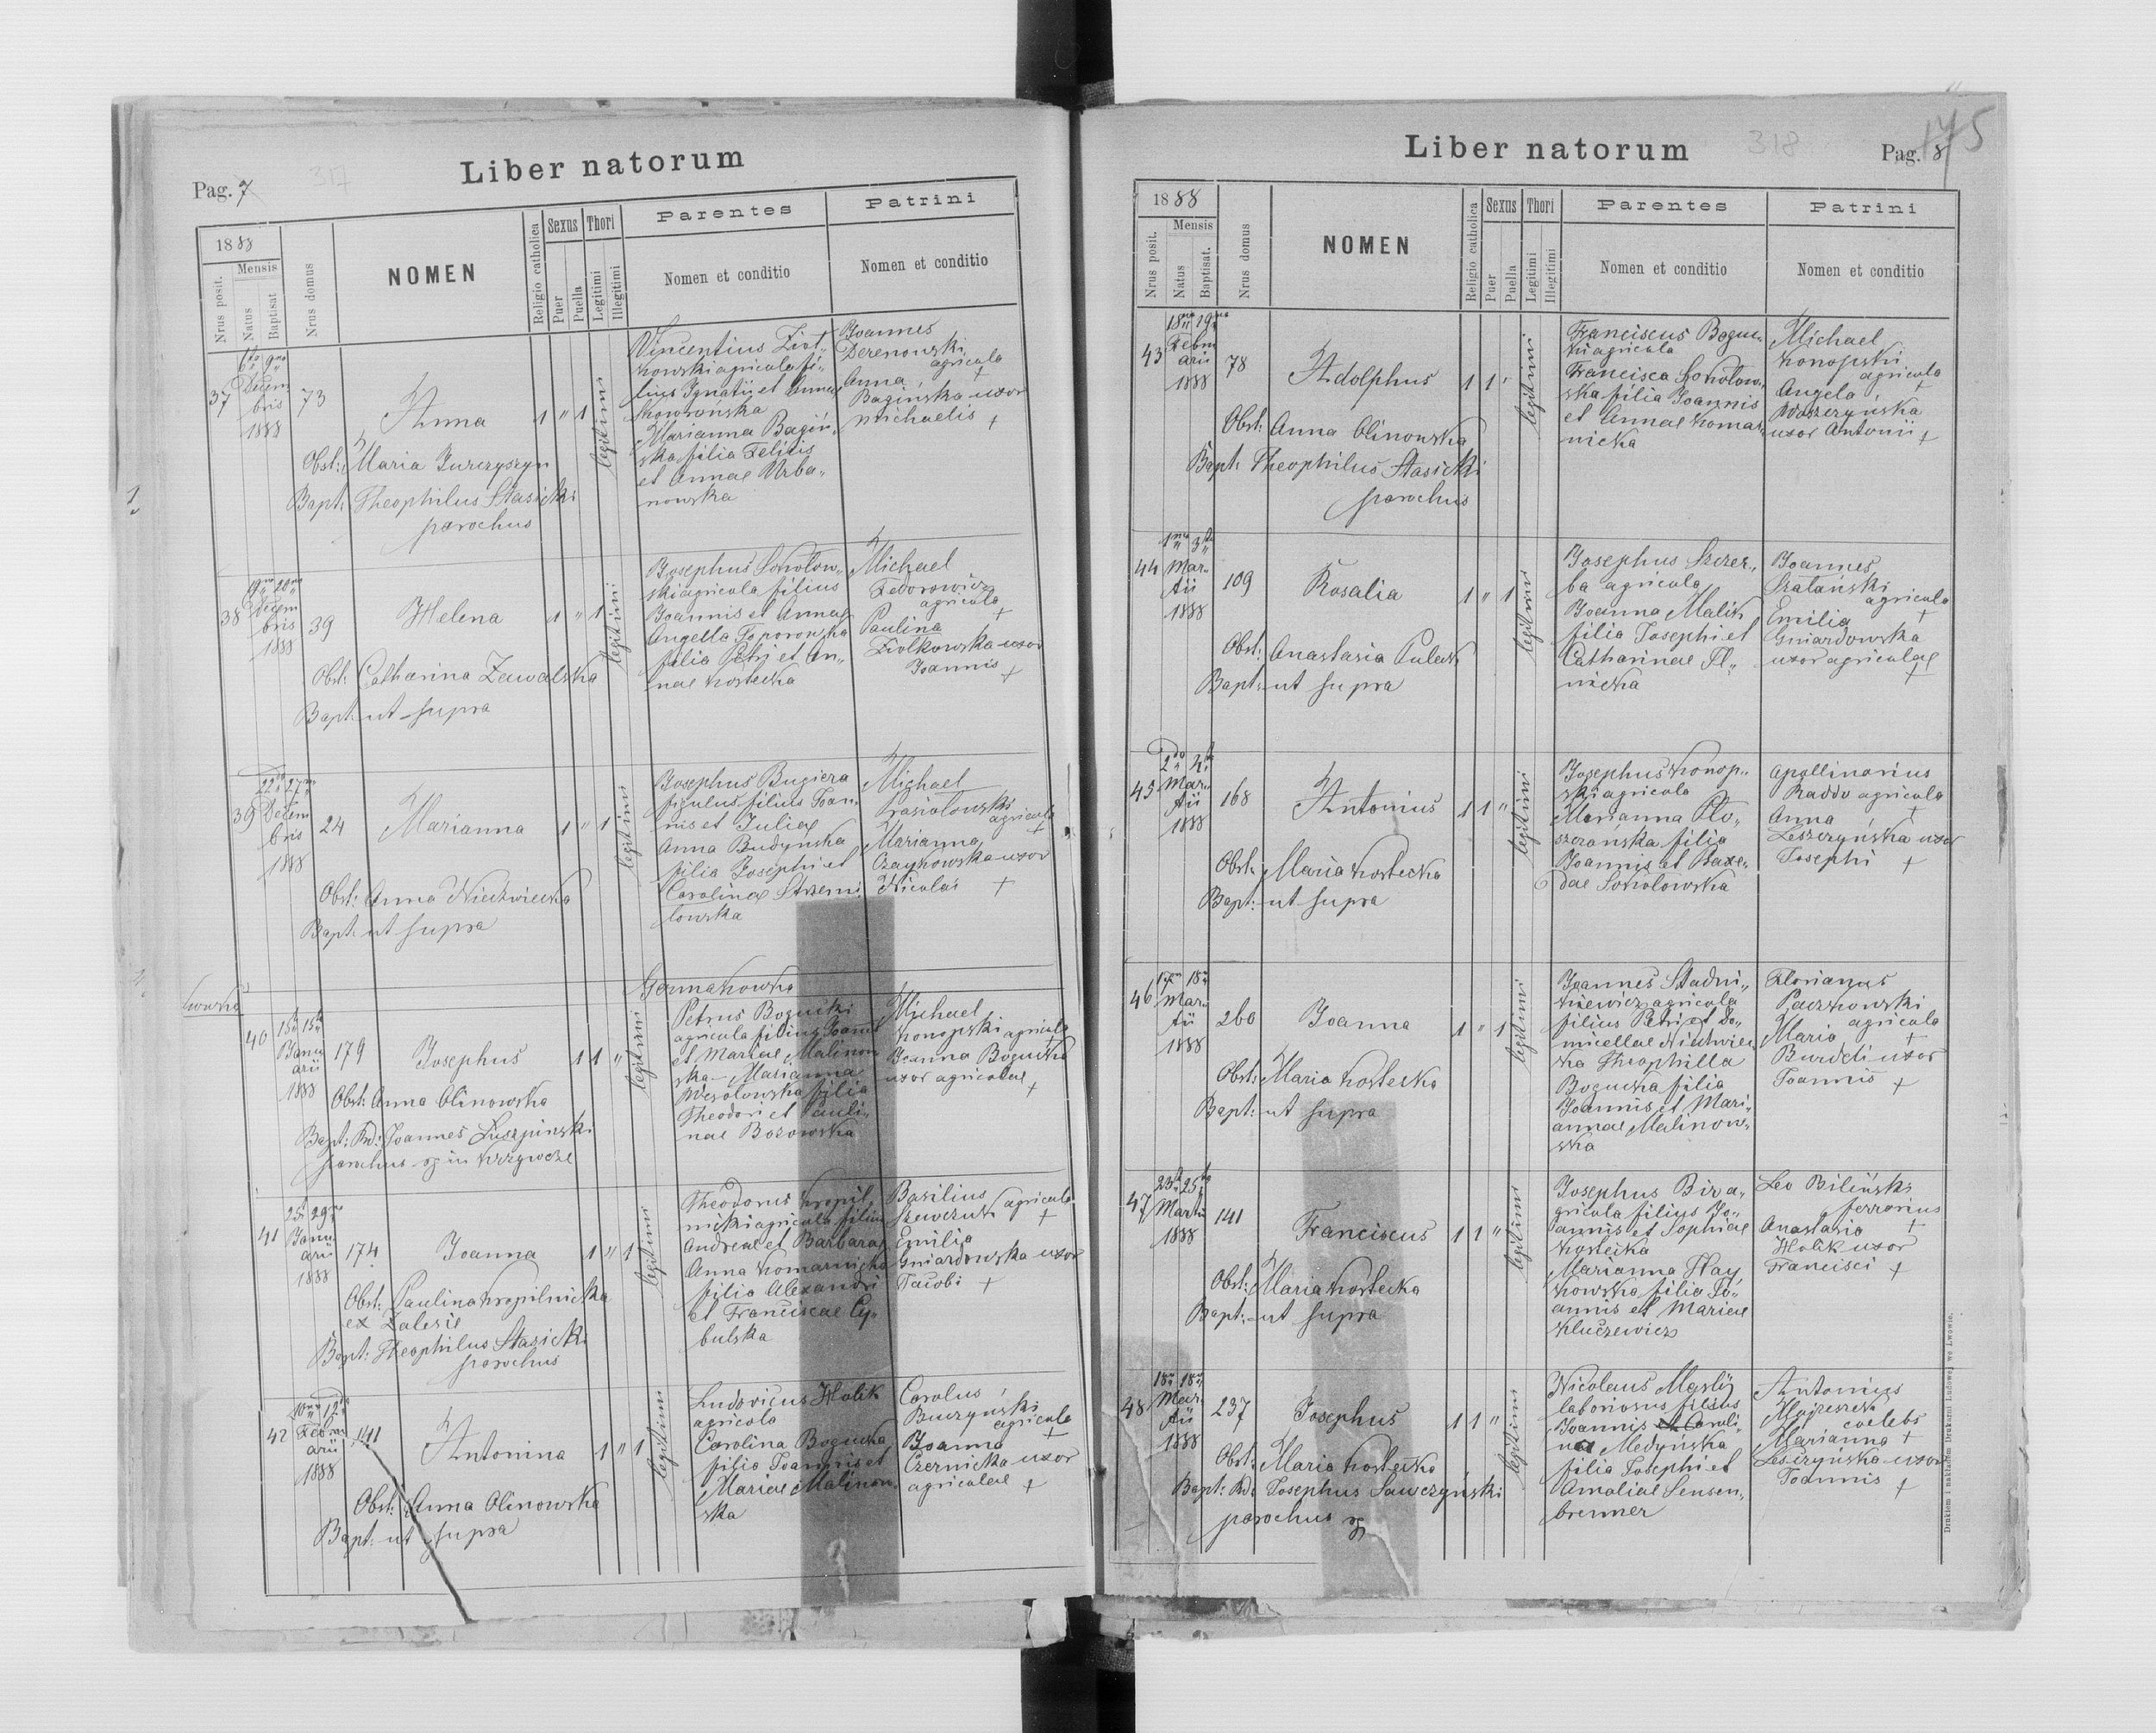 Pag. 7
317
Liber natorum
1888
Nrus posit.
Mensis
Natus
Baptisat
Nrus domus
NOMEN
Religio catholica
Sexus
Puer
Puella
Thori
Legitimi
Illegitimi
Parentes
Nomen et conditio
Patrini
Nomen et conditio
37
Decem
bris
1888
73
Anna
1 " 1
legitimi
Vincentius Ziol„
kowski agricola fi„
lius Ignatii et Annae
Skowrońska
Marianna Bagiń„
ska filia Felicis
et Annae Urba„
nowska
Joannes
Derenowski
agricola
Anna
Bagińska uxor
Michaelis +
Obst: Maria Jurczyszyn
Bapt: Theophilus Stasicki
parochus
38
19 20
Decem
bris
1888
39
Helena
1 " 1
legitimi
Josephus Sokolow„
ski agricola filius
Joannis et Annae
Angella Toporowska
filia Petri et An„
nae Kostecka
Michael
Fedorowicz
agricola
+
Paulina
Ziolkowska uxor
Joannis +
Obst: Catharina Zawalska
Bapt: ut supra
39
22 27
Decem
bris
1888
24
Marianna
1 " 1
legitimi
Josephus Bugiera
figulus filius Joan„
nis et Juliae
Anna Budyńska
filia Josephi et
Carolinae Strzemi„
lowska
Michael
agricola
+
Marianna
Czaykowska uxor
Nicolai +
Obst: Anna Niedzwiecka
Bapt: ut supra
Germakowka
40
15 15
Janu
arii
1888
179
Josephus
1 1 "
legitimi
Petrus Bogucki
agricola filius Joannis
et Mariae Malinow
ska Marianna
Wesolowska filia
Theodori et Pauli„
nae Bozowska
Michael
Konopski agricola
Joanna Bogucka
uxor agricolae +
Obst: Anna Olinowska
Bapt: Rd: Joannes Luszpinski
parochus in Krzywcze
41
25 29
Janu
arii
1888
174
Joanna
1 " 1
legitimi
Theodorus Kropil„
nicki agricola filius
Andreae et Barbarae
Anna Komarnicka
filia Alexandri
et Franciscae Cy„
bulska
Basilius
Szewczuk agricola
+
Emilia
Gniardowska uxor
Jacobi +
Obst: Paulina Kropilnicka
ex Zalesie
Bapt: Theophilus Stasicki
parochus
42
10 12
Febru
arii
1888
141
Antonina
1 " 1
legitimi
Ludovicus Holik
agricola
Carolina Bogucka
filia Joannis et
Mariae Malinow„
ska
Carolus
Buczyński
agricola
+
Joanna
Czernicka uxor
agricolae +
Obst: Anna Olinowska
Bapt: ut supra
Liber natorum
318
Pag. 8
175
1888
Nrus posit.
Mensis
Natus
Baptisat.
Nrus domus
NOMEN
Religio catholica
Sexus
Puer
Puella
Thori
Legitimi
Illegitimi
Parentes
Nomen et conditio
Patrini
Nomen et conditio
43
18 19
Febru
arii
1888
78
Adolphus
1 1 "
legitimi
Franciscus Bogu„
cki agricola
Francisca Sokolow„
ska filia Joannis
et Annae Komar„
nicka
Michael
Konopski
agricola
+
Angela
Waszczyńska
uxor Antonii +
Obst: Anna Olinowska
Bapt: Theophilus Stasicki
parochus
44
1 3
Mar„
tii
1888
109
Rosalia
1 " 1
legitimi
Josephus Szczer„
ba agricola
Joanna Malik
filia Josephi et
Catharinae Il„
nicka
Joannes
Szatański
agricola
+
Emilia
Gniardowska
uxor agricolae
+
Obst: Anastasia Puleck
Bapt: ut supra
45
2 4
Mar„
tii
1888
168
Antonius
1 1 "
legitimi
Josephus Konop„
ski agricola
Marianna Plo„
szczańska filia
Joannis et Baze„
dae Sokolowska
Apollinarius
Raddo agricola
+
Anna
Leszczyńska uxor
Josephi +
Obst: Maria Kostecka
Bapt: ut supra
46
17 18
Mar„
tii
1888
260
Joanna
1 " 1
legitimi
Joannes Stadni„
kiewicz agricola
filius Petri et Do„
micellae Niedzwiec
ka Theophilla
Bogucka filia
Joannis et Mari„
annae Malinow„
ska
Florianus
Paczkowski
agricola
+
Maria
Burdeti uxor
Joannis +
Obst: Maria Kostecka
Bapt: ut supra
47
23 25
Martii
1888
141
Franciscus
1 1 "
legitimi
Josephus Biza a„
gricola filius Jo„
annis et Sophiae
Kostecka
Marianna Hay
kowska filia Jo„
annis et Mariae
Kluczewicz
Leo Biliński
ferrarius
+
Anastasia
Holik uxor
Francisci +
Obst: Maria Kostecka
Bapt: ut supra
48
18 18
Mar„
tii
1888
237
Josephus
1 1 "
legitimi
Nicolaus Maslij
laboriosus filius
Joannis et Caroli„
na Medyńska
filia Josephi et
Amaliae Sensen„
brenner
Antonius
coelebs
Marianna +
Leszczyńska uxor
Joannis +
Obst: Maria Kostecka
Bapt: Rd: Josephus Sawczyński
parochus
Drukiem i nakładem Drukarni Ludowej we Lwowie.